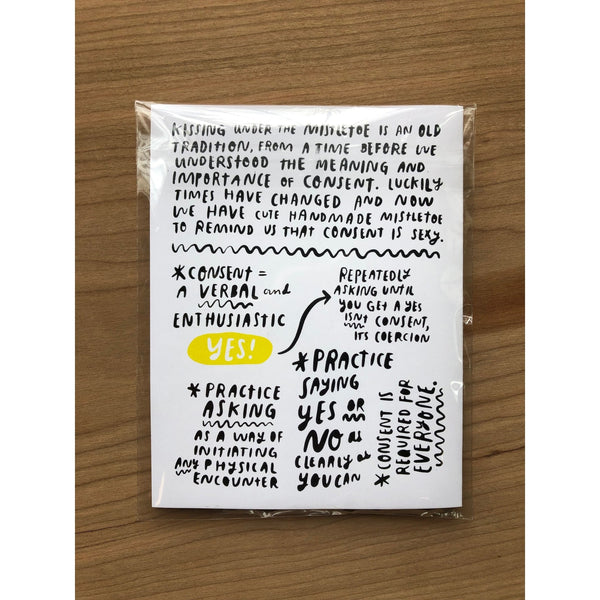 KISSING UNDER THE MISTLETOE IS AN OLD
TRADITION, FROM A TIME BEFORE WE
UNDERSTOOD THE MEANING AND
IMPORTANCE OF CONSENT. LUCKILY
TIMES HAVE CHANGED AND NOW
WE HAVE CUTE HANDMADE MISTLETOE
TO REMIND US THAT CONSENT IS SEXY.
*CONSENT =
A VERBAL and
ENTHUSIASTIC
YES!
REPEATEDLY
ASKING UNTIL
YOU GET A YES
ISNT CONSENT,
ITS COERCION
*PRACTICE
ASKING
AS A WAY OF
INITIATING
ANY PHYSICAL
ENCOUNTER
*PRACTICE
SAYING
YES OR
NO as
CLEARLY as
YOU CAN
*CONSENT IS
REQUIRED FOR
EVERYONE.